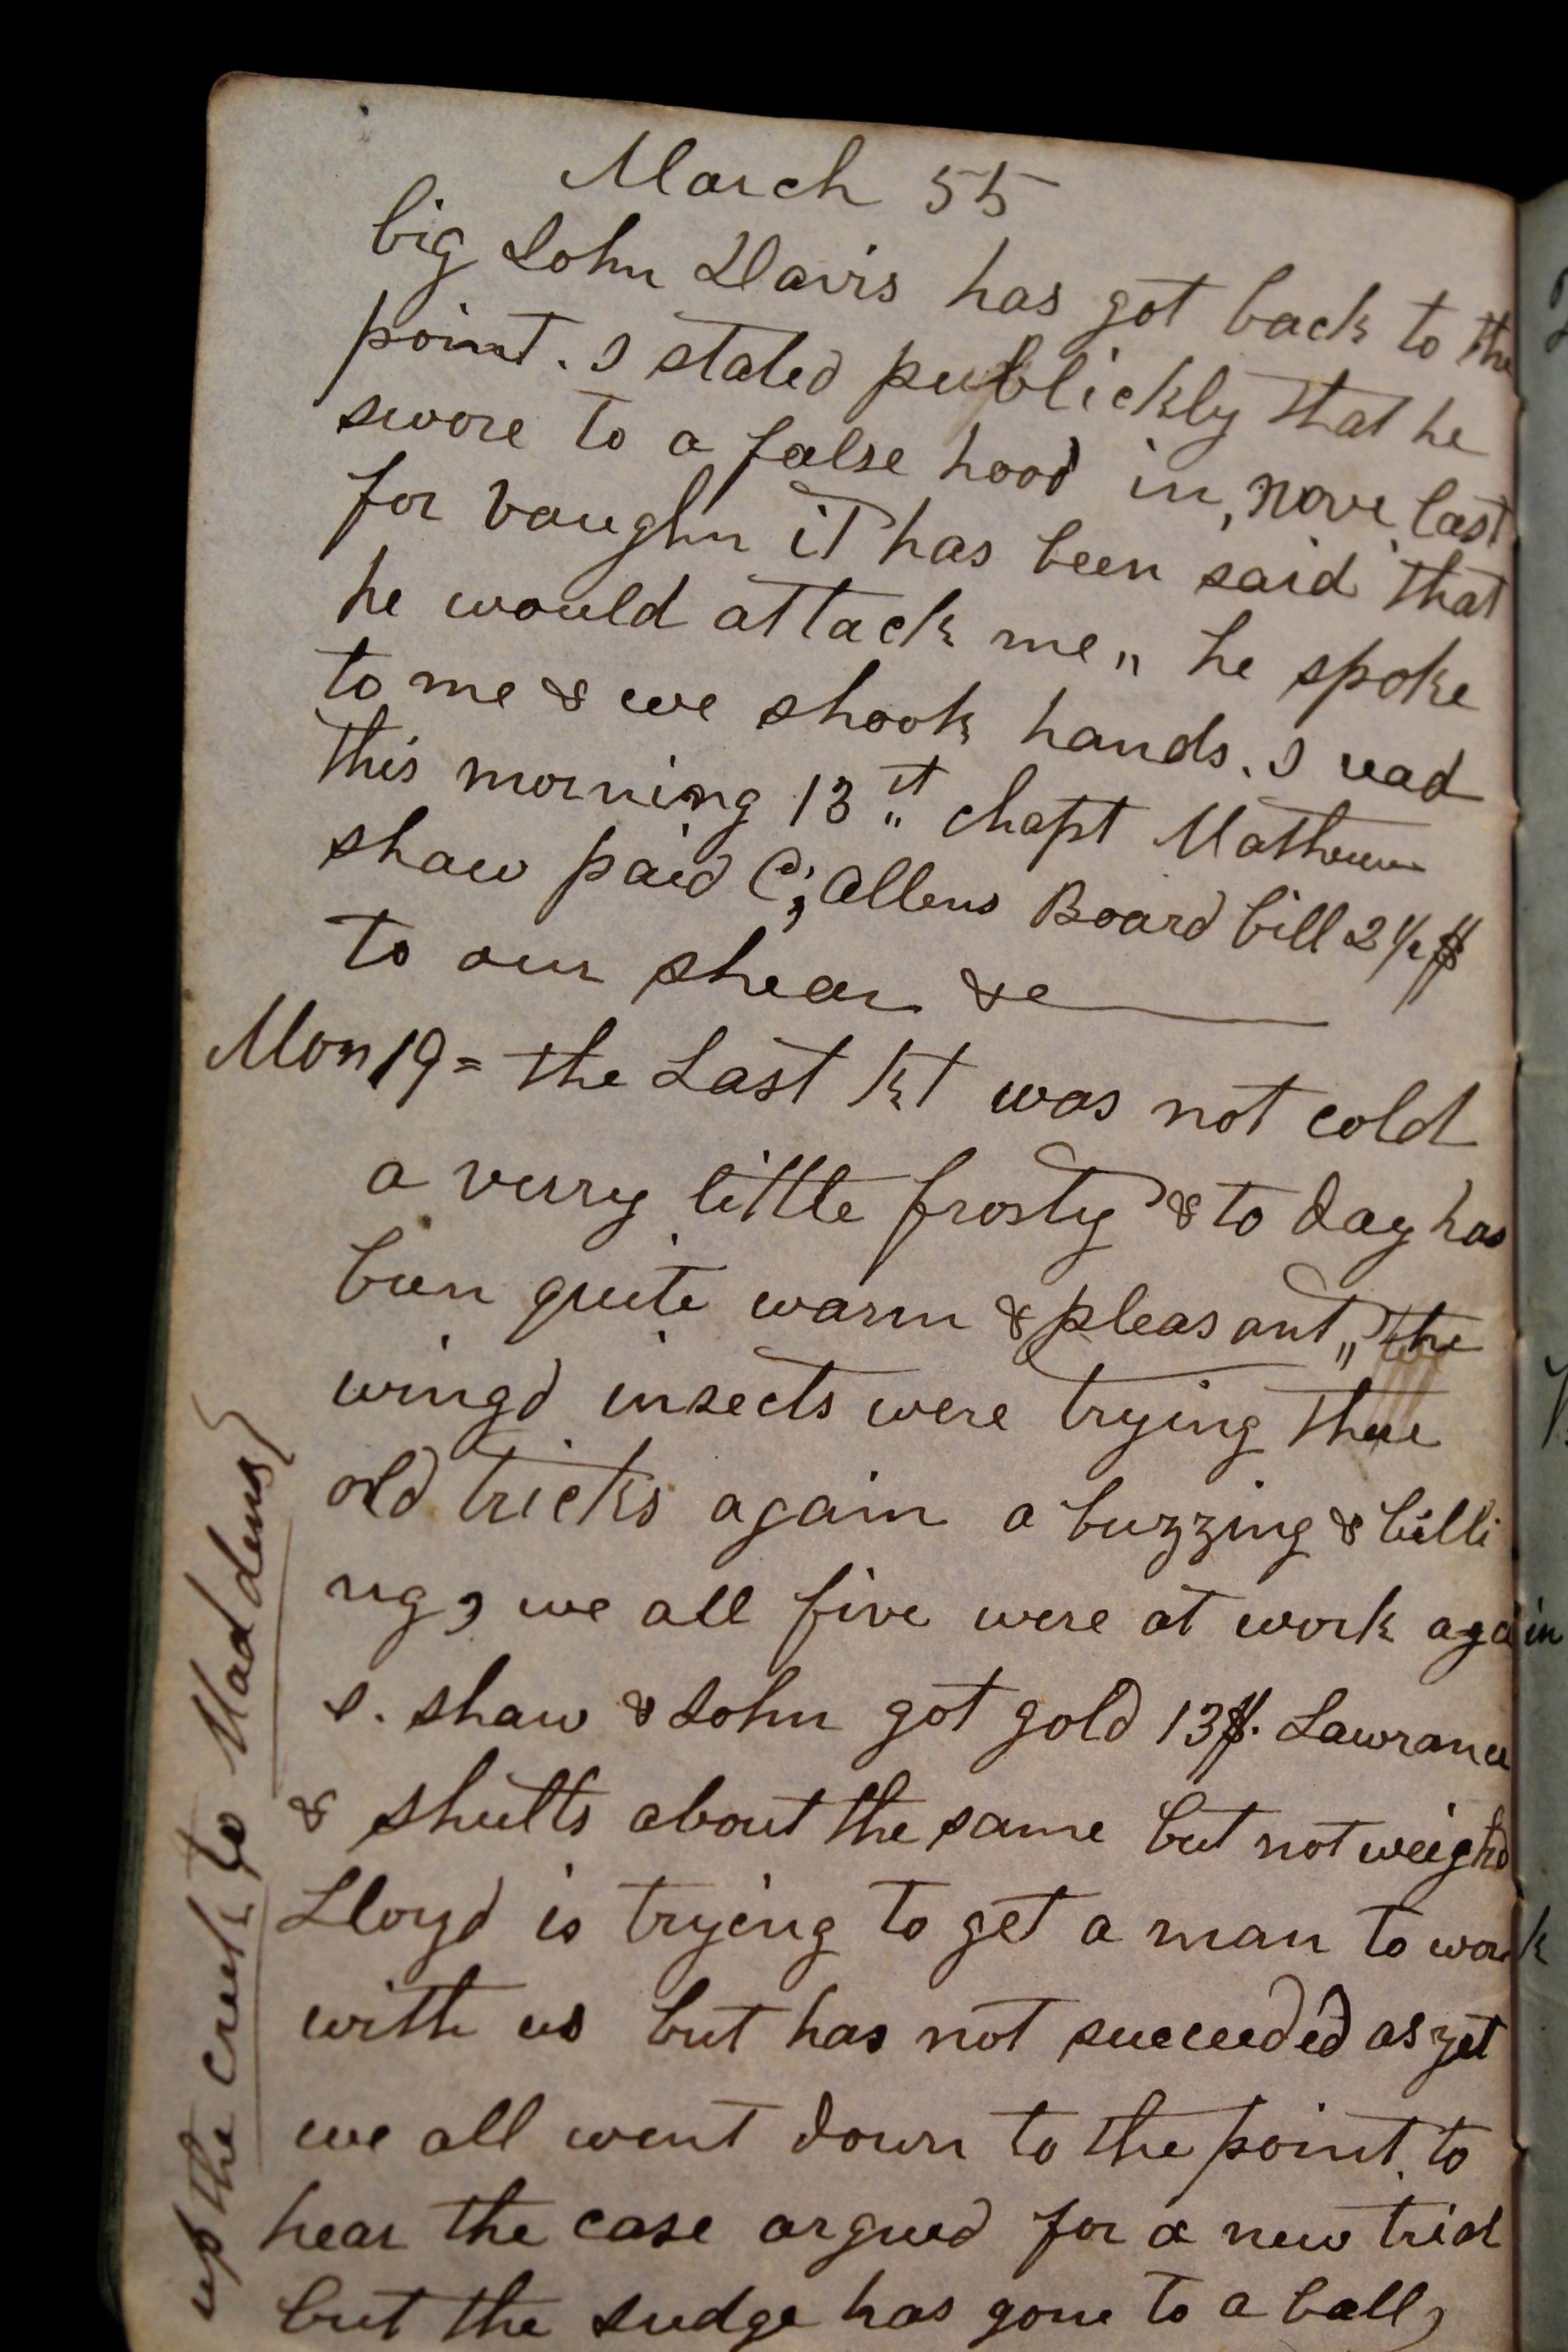 March 55
big John Davis has got back to the
point. I stated publickly that he
swore to a false hood in, nove last
for vaughn it has been said that
he would attack me,, he spoke
to me & we shook hands. I read
this morning 13th chapt Mathew
shaw paid C; Allens Board bill 2 1/2 $
to our shear &c
Mon 19 = the Last Nt was not cold
a verry little frosty & to day has
been quite warm & pleasant,, the
wingd insects were trying thee
old tricks again a buzzing & billi
ng, we all five were at work again
s. shaw & John got gold 13$. Lawrance
& shults about the same but not weighd
Lloyd is trying to get a man to work
with us but has not succeeded as yet
we all went down to the point to
hear the case argued for a new trial
but the Judge has gone to a ball,
up the creek to Maddens